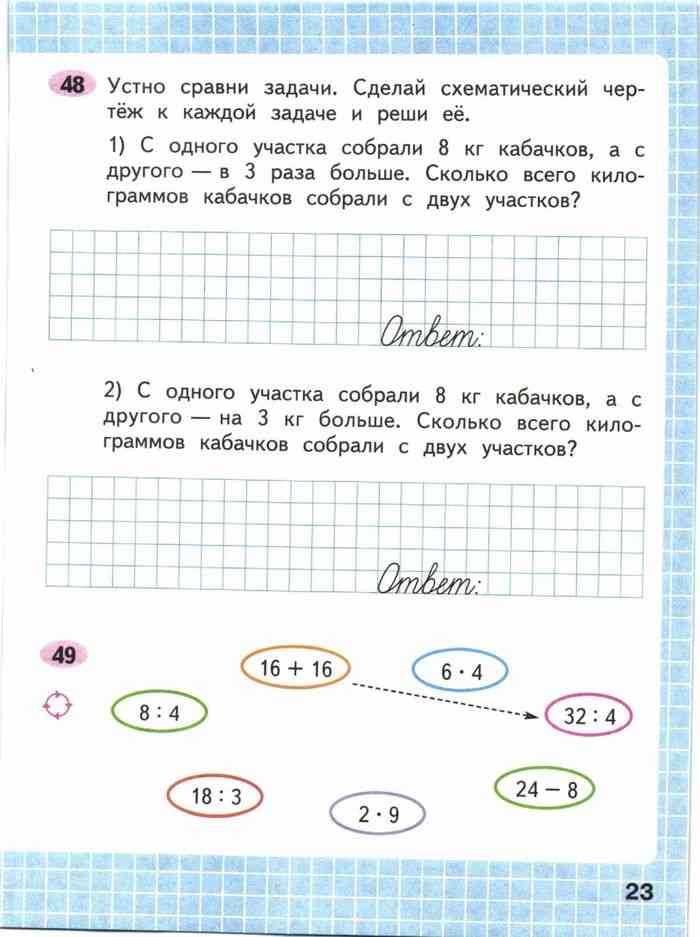 48 Устно сравни задачи. Сделай схематический чер-
тёж к каждой задаче и реши её.
1) С одного участка собрали 8 кг кабачков, а с
другого — в 3 раза больше. Сколько всего кило-
граммов кабачков собрали с двух участков?
Ответ:
2) С одного участка собрали 8 кг кабачков, а с
другого — на 3 кг больше. Сколько всего кило-
граммов кабачков собрали с двух участков?
Ответ:
49
16 + 16
6 · 4
8 : 4
32 : 4
18 : 3
2 · 9
24 − 8
23